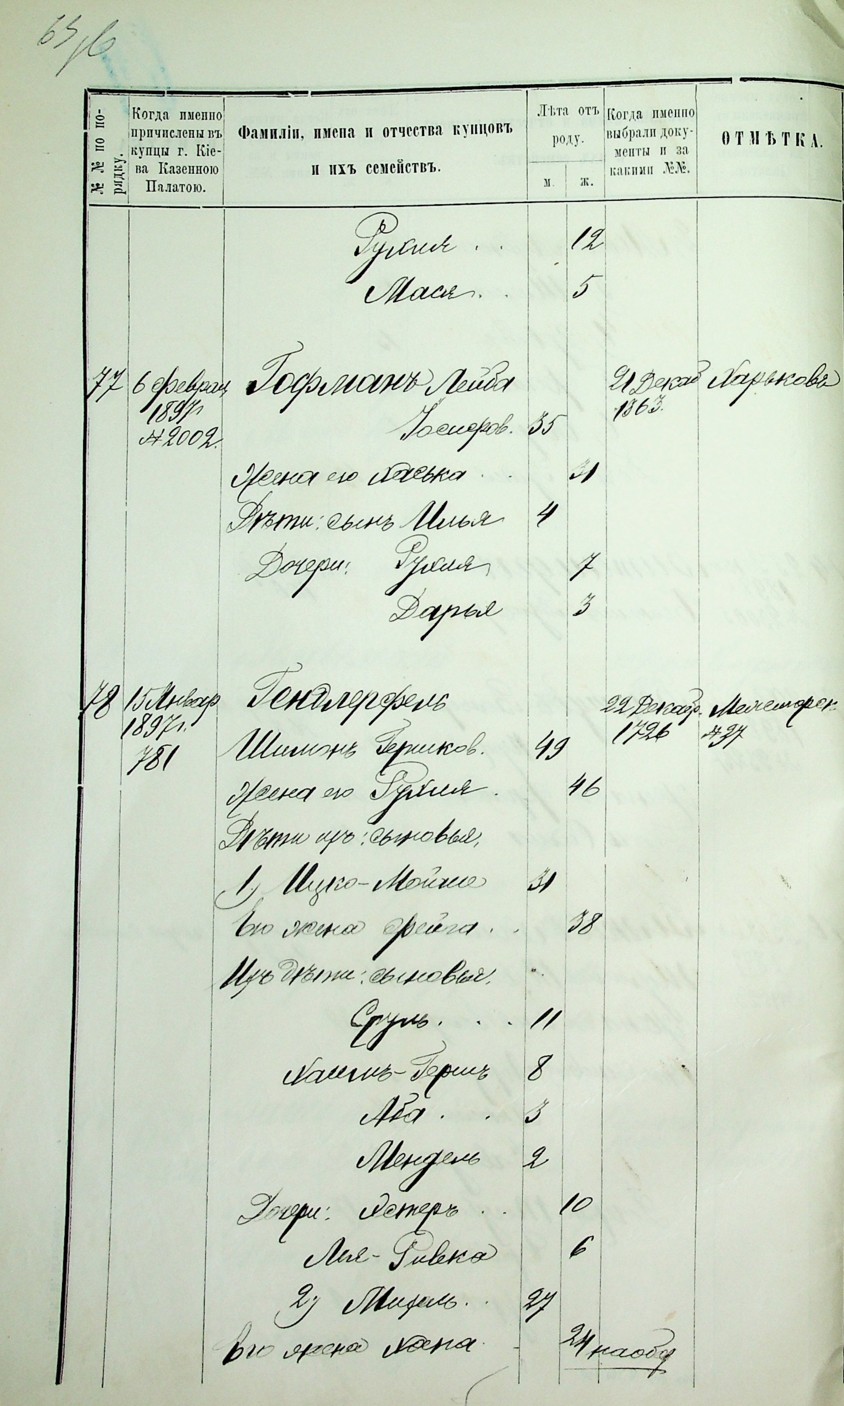 №№ по порядку.
Когда именно
причислены въ
купцы г. Кіе-
ва Казенною
Палатою.
Фамиліи, имена и отчества купцовъ
и ихъ семействъ.
Лѣта отъ
роду.
м. ж.
Когда именно
выбрали доку-
менты и за
какими №№.
ОТМѢТКА.
Рухля . . 12
Мася . . 5
77 6 феврал Гофманъ Лейба 21 Декаб Харьковъ
1897г. Іосифов. 35 1863.
№2002.
Жена его Хаська . . 31
Дѣти: сынъ Илья 4
Дочери: Рухля 7
Дарья 3
78 15 Январ Гендлерфель 22 Декабр.
1897г. 1726 №27
781 Шимонъ Гершков. 49
Жена его Рухля . 46
Дѣти ихъ: сыновья,
1) Ицко-Мойше 31
Его жена Фейга . . 38
Ихъ дѣти: сыновья,
Сруль . . . 11
Хаимъ-Гершъ 8
Аба . . 3
Мендель 2
Дочери: Эстеръ . . 10
Лея-Ривка 6
2) Михель . . 27
Его жена Хана . . 24 на обор